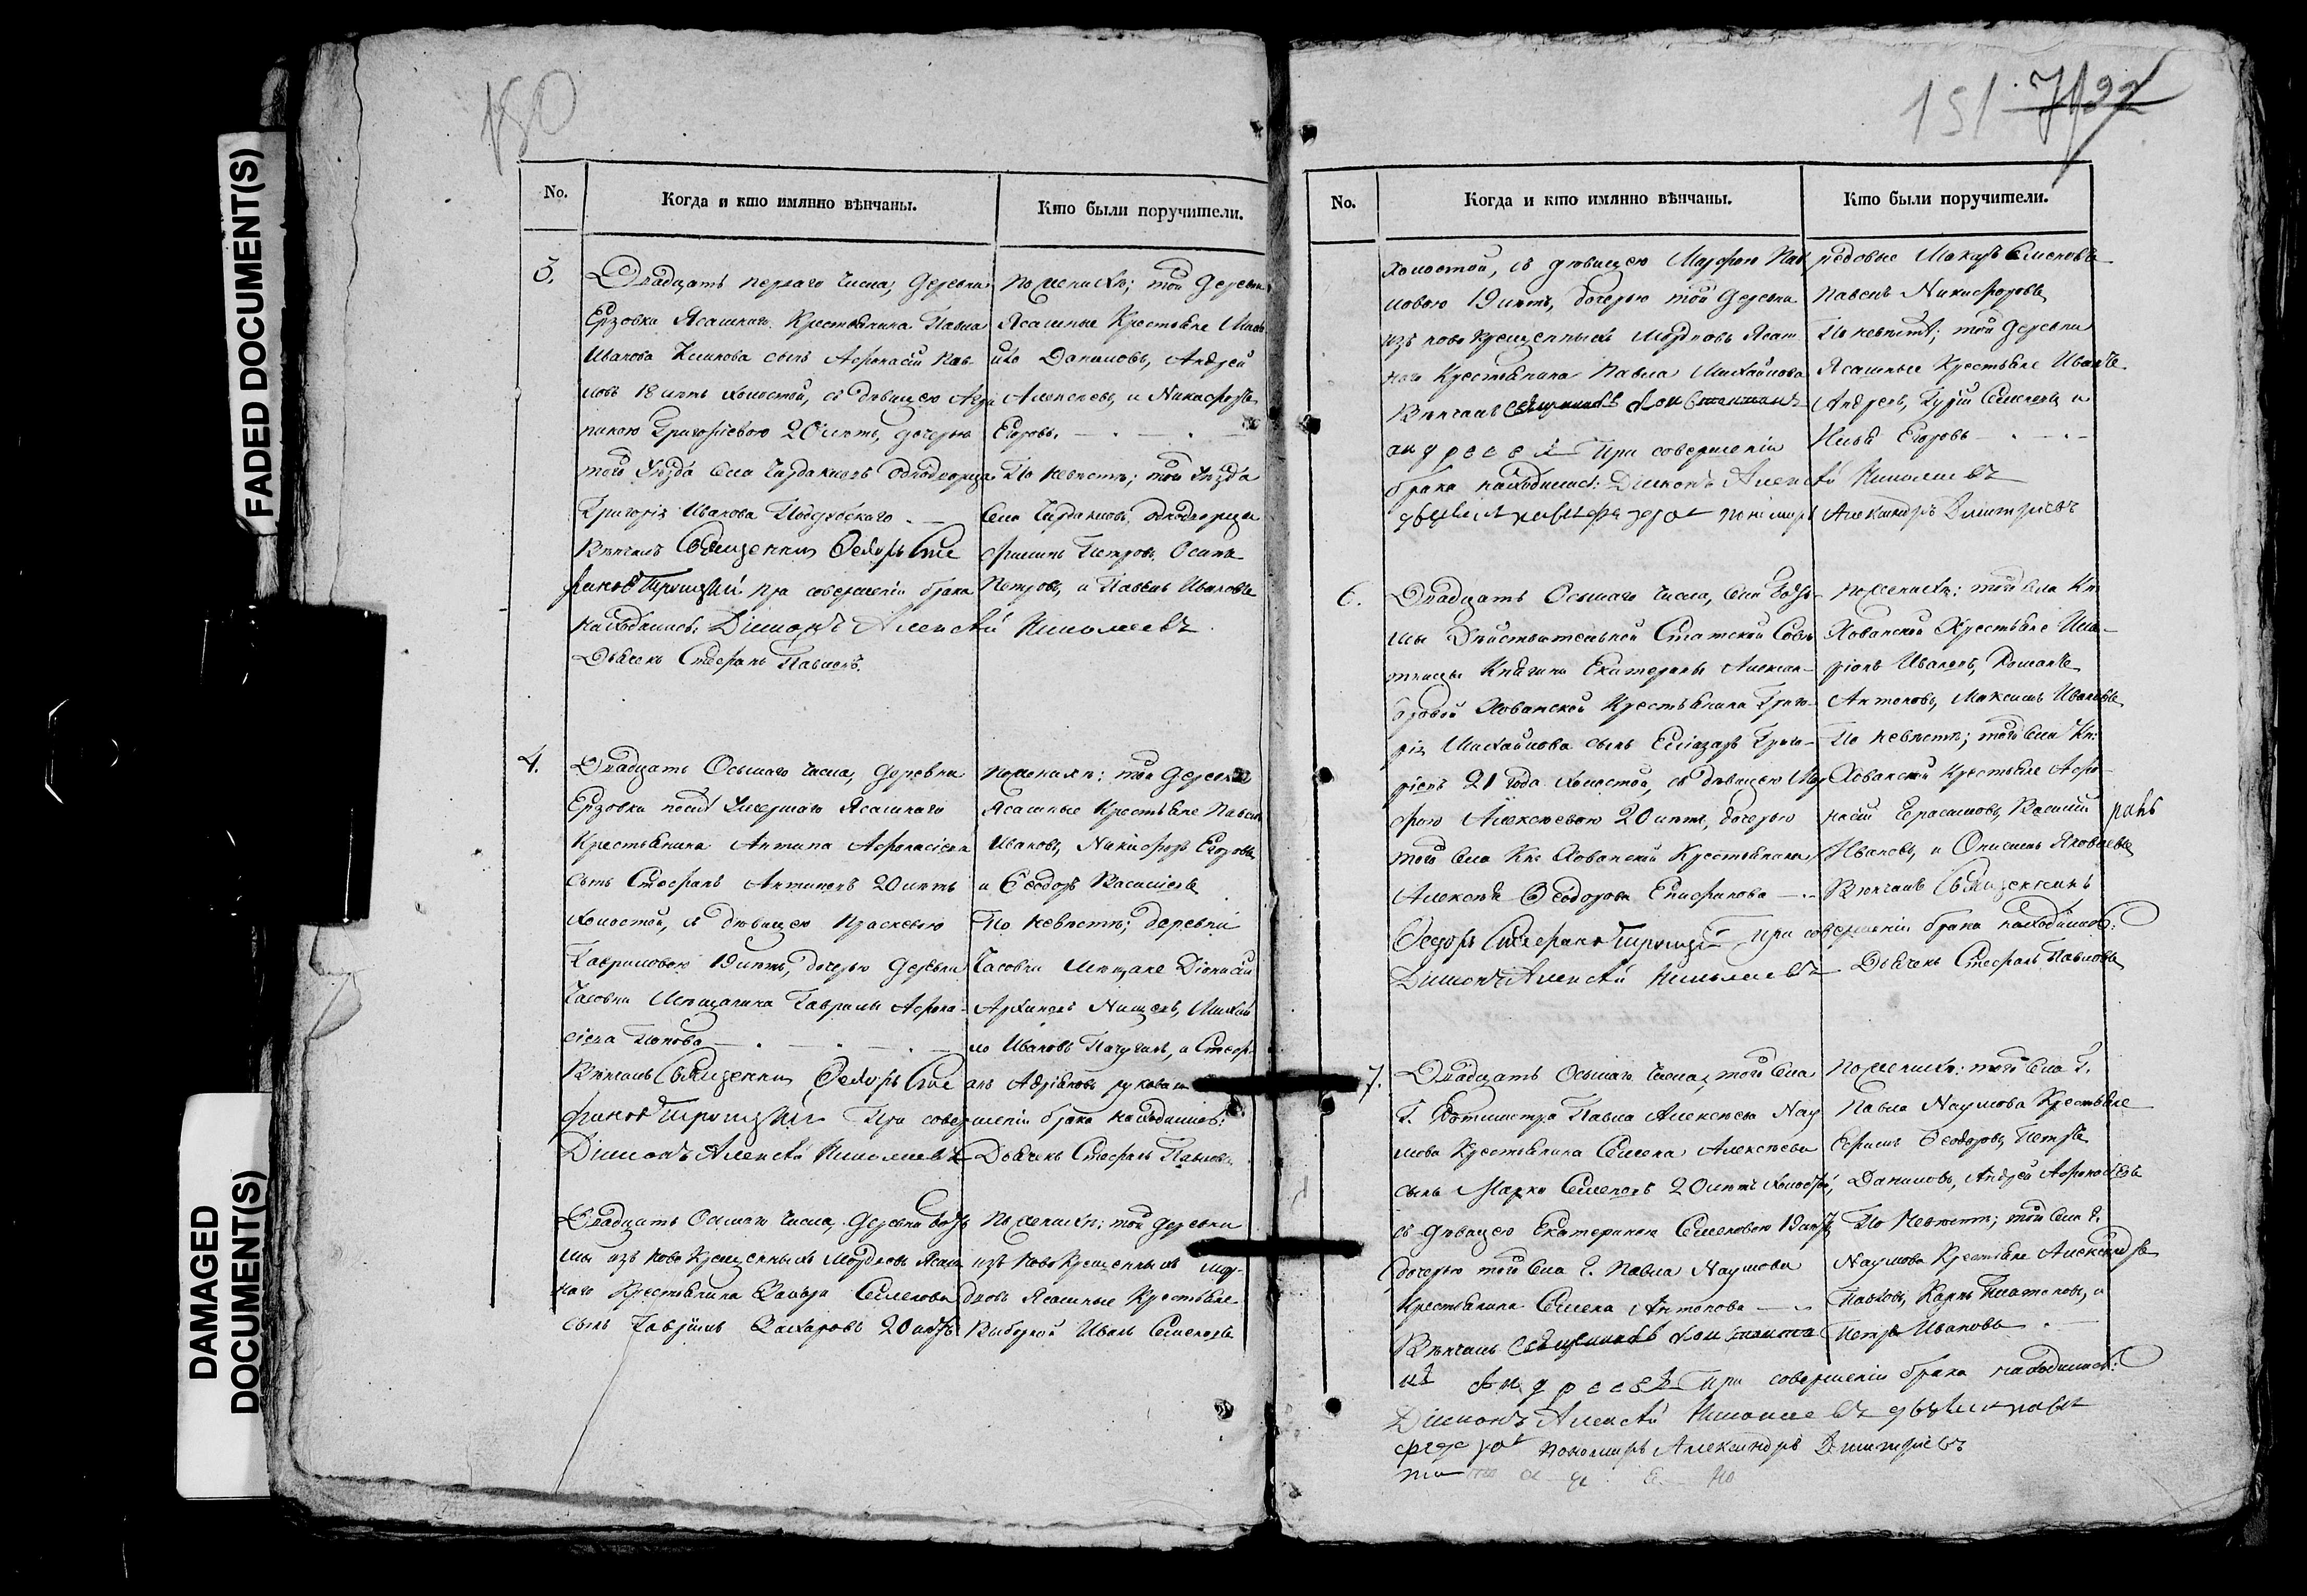 FADED DOCUMENT(S)
DAMAGED
DOCUMENT(S)
180
No.
Когда и кто имянно вѣнчаны.
Кто были поручители.
3.
Двадцать перваго числа, деревни
Ерзовки Ясашнаго Крестьянина Павла
Иванова Климова сынъ Афонасій Пав-
ловъ 18 лѣтъ холостой, съ дѣвицею Агри
пиною Григорьевою 20 лѣтъ, дочерью
того Уѣзда села Чердакловъ Однодворца
Григорія Иванова
Вѣнчалъ Священникъ Ѳедоръ Сте
фановъ Троицкій при совершеніи брака
находились: Діаконъ Алексѣй Николаевъ
Дьячекъ Стефанъ Павловъ
По женихѣ; той деревни
Ясашные Крестьяне
Даниловъ, Андрей
Алексѣевъ, и Никифоръ
Егоровъ.
По невѣстѣ; того Уѣзда
села Чердаклов, однодворцы
Филипъ Петровъ, Осипъ
Петровъ, и Павелъ Ивановъ
4.
Двадцать Осьмаго числа, деревни
Ерзовки послѣ Умершаго Ясашнаго
Крестьянина Антипа Афонасіева
сынъ Стефанъ Антиповъ 20 лѣтъ
холостой, съ дѣвицею Праскевою
Гавриловою 19 лѣтъ, дочерью деревни
Часовни Мещанина Гаврилы Афона-
сіева Попова
Вѣнчалъ Священникъ Ѳедоръ Сте
фановъ Троицкій При совершеніи брака находились:
Діаконъ Алексѣй Николаевъ Дьячекъ Стефанъ Павловъ
По женихѣ: той деревни
Ясашные Крестьяне Павелъ
Ивановъ, Никифоръ Егоровъ
и Ѳеодоръ Василіевъ
По невѣстѣ; деревни
Часовни Мещане Діонисій
Архиповъ Нищевъ, Михай
ло Ивановъ Пачугинъ, и Стеф-
анъ Адріяновъ
Двадцать Осьмаго числа, деревни
мы изъ новокрещенныхъ Мордвовъ Ясаш
наго Крестьянина Захара Семенова
сынъ Гавріилъ Захаровъ 20 лѣтъ
По женихѣ: той деревни
изъ новокрещенныхъ мор-
двовъ Ясашные Крестьяне
Выборной Иванъ Семеновъ
151
No.
Когда и кто имянно вѣнчаны.
Кто были поручители.
холостой, съ дѣвицею Марфою Пав
ловою 19 лѣтъ, дочерью той деревни
изъ новокрещенныхъ Мордвовъ Ясаш
наго Крестьянина Павла Михайлова
Вѣнчалъ священникъ Константинъ
андреевъ При совершеніи
брака находились: Діаконъ Алексѣй Николаевъ
пономарь Александръ Димитріевъ
рядовые Макаръ Семеновъ
Павелъ Никифоровъ
По невѣстѣ; той деревни
Ясашные Крестьяне Иванъ
Андреевъ, Семеновъ и
Илья Егоровъ
6.
Двадцать Осьмаго числа, села
мы Дѣйствительной Статской Совѣ
тницы Княгини Екатерины Алексан-
дровой Хованской Крестьянина Григо-
рія Михайлова сынъ Еліазаръ Григо-
ріевъ 21 года холостой, съ дѣвицею Мар
фою Алексѣевою 20 лѣтъ, дочерью
того села Кн: Хованской Крестьянина
Алексѣя Ѳеодорова Епифанова
Ѳедоръ Стефановъ Троицкій При совершеніи брака находились:
Діаконъ Алексѣй Николаевъ Дьячекъ Стефанъ Павловъ
По женихѣ: того села Кн:
Хованской Крестьяне Ила-
ріонъ Ивановъ, Романъ
Антоновъ, Максимъ Ивановъ
По невѣстѣ; того села Кн:
Хованской Крестьяне Афо-
насій Герасимовъ, Василій
Ивановъ, и Онисимъ Яковлевъ
Вѣнчалъ Священникъ
7.
Двадцать Осьмаго числа, того села
Г. Ротмистра Павла Алексѣева Нау
мова Крестьянина Семена Алексѣева
сынъ Марко Семеновъ 20 лѣтъ холостой,
съ дѣвицею Екатериною Семеновою 19 лѣтъ
дочерью того села Г. Павла Наумова
Крестьянина Семена Антонова
Вѣнчалъ священникъ Константи
нъ Андреевъ При совершеніи брака находились:
Діаконъ Алексѣй Николаевъ
пономарь Александръ Димитріевъ
По женихѣ: того села Г.
Павла Наумова Крестьяне
Ефимъ Ѳеодоровъ, Петръ
Даниловъ, Андрей Афонасіевъ
По Невѣстѣ; того села Г.
Наумова Крестьяне Александръ
Павловъ, Карпъ Платоновъ, и
Петръ Ивановъ